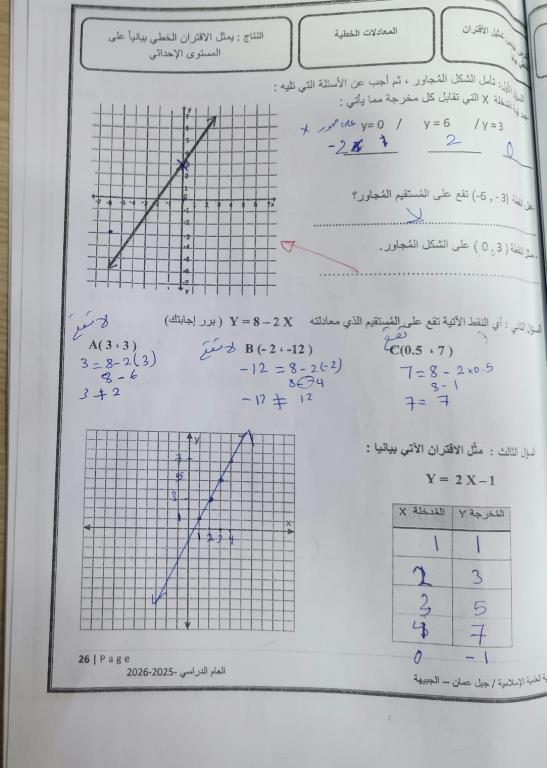 المعادلات الخطية
النتاج : يمثل الاقتران الخطي بيانياً على
المستوى الإحداثي
السؤال الأول: تأمل الشكل المُجاور ، ثم أجب عن الأسئلة التي تليه :
المُدخلة X التي تقابل كل مخرجة مما يأتي :
y = 3 / y = 6 / y = 0
0 2 -2
هل النقطة (-6 , -3) تقع على المُستقيم المُجاور؟
لا
مثل النقطة (0 , 3) على الشكل المُجاور.
السؤال الثاني : أي النقط الآتية تقع على المُستقيم الذي معادلته Y = 8 – 2 X ( برر إجابتك)
لا تقع لا تقع تقع
A( 3 ، 3 ) B (- 2 ، -12 ) C(0.5 ، 7 )
3 = 8 - 2(3) -12 = 8 - 2(-2) 7 = 8 - 2×0.5
8 - 6 8 - -4 8 - 1
3 ≠ 2 -12 ≠ 12 7 = 7
السؤال الثالث : مثّل الاقتران الآتي بيانيا :
Y = 2 X – 1
المُدخلة X المُخرجة Y
1 1
2 3
3 5
4 7
0 -1
26 | Page
العام الدراسي -2025-2026
الإسلامية / جبل عمان – الجبيهة